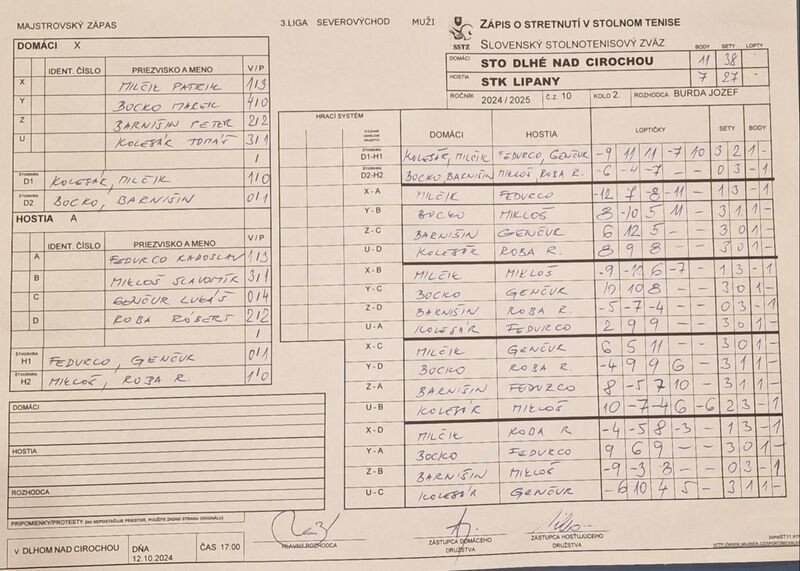 MAJSTROVSKÝ ZÁPAS
3.LIGA SEVEROVÝCHOD MUŽI
SSTZ
ZÁPIS O STRETNUTÍ V STOLNOM TENISE
SLOVENSKÝ STOLNOTENISOVÝ ZVÄZ
BODY SETY LOPTY
DOMÁCI STO DLHÉ NAD CIROCHOU 11 38 -
HOSTIA STK LIPANY 7 27 -
ROČNÍK 2024/2025 Č.Z. 10 KOLO 2. ROZHODCA BURDA JOZEF
DOMÁCI X
IDENT. ČÍSLO PRIEZVISKO A MENO V/P
X MILČIK PATRIK 1/3
Y BOCKO MAREK 4/0
Z BARNIŠIN PETER 2/2
U KOLESÁR TOMÁŠ 3/1
/
ŠTVORHRA D1 KOLESÁR, MILČIK 1/0
ŠTVORHRA D2 BOCKO, BARNIŠIN 0/1
HOSTIA A
IDENT. ČÍSLO PRIEZVISKO A MENO V/P
A FEDURCO RADOSLAV 1/3
B MIKLOŠ SLAVOMÍR 3/1
C GENČUR LUKÁŠ 0/4
D ROBA RÓBERT 2/2
/
ŠTVORHRA H1 FEDURCO, GENČUR 0/1
ŠTVORHRA H2 MIKLOŠ, ROBA R. 1/0
HRACÍ SYSTÉM DOMÁCI HOSTIA LOPTIČKY SETY BODY
ŠTVORHRA D1-H1 KOLESÁR, MILČIK FEDURCO, GENČUR -9 11 11 -7 10 3 2 1 -
ŠTVORHRA D2-H2 BOCKO, BARNIŠIN MIKLOŠ ROBA R. -6 -4 -7 - - 0 3 - 1
X-A MILČIK FEDURCO -12 7 -8 -11 - 1 3 - 1
Y-B BOCKO MIKLOŠ 8 -10 5 11 - 3 1 1 -
Z-C BARNIŠIN GENČUR 6 12 5 - - 3 0 1 -
U-D KOLESÁR ROBA R. 8 9 8 - - 3 0 1 -
X-B MILČIK MIKLOŠ -9 -10 6 -7 - 1 3 - 1
Y-C BOCKO GENČUR 10 10 8 - - 3 0 1 -
Z-D BARNIŠIN ROBA R. -5 -7 -4 - - 0 3 - 1
U-A KOLESÁR FEDURCO 2 9 9 - - 3 0 1 -
X-C MILČIK GENČUR 6 5 11 - - 3 0 1 -
Y-D BOCKO ROBA R. -4 9 9 6 - 3 1 1 -
Z-A BARNIŠIN FEDURCO 8 -5 7 10 - 3 1 1 -
U-B KOLESÁR MIKLOŠ 10 -7 -4 6 -6 2 3 - 1
X-D MILČIK ROBA R -4 -5 8 -3 - 1 3 - 1
Y-A BOCKO FEDURCO 9 6 9 - - 3 0 1 -
Z-B BARNIŠIN MIKLOŠ -9 -3 -8 - - 0 3 - 1
U-C KOLESÁR GENČUR -6 10 4 5 - 3 1 1 -
DOMÁCI
HOSTIA
ROZHODCA
PRIPOMIENKY/PROTESTY (AK NEPOSTAČUJE PRIESTOR, POUŽITE ZADNÚ STRANU ORIGINÁLU)
V DLHOM NAD CIROCHOU DŇA 12.10.2024 ČAS 17:00
HLAVNÝ ROZHODCA
ZÁSTUPCA DOMÁCEHO DRUŽSTVA
ZÁSTUPCA HOSŤUJÚCEHO DRUŽSTVA